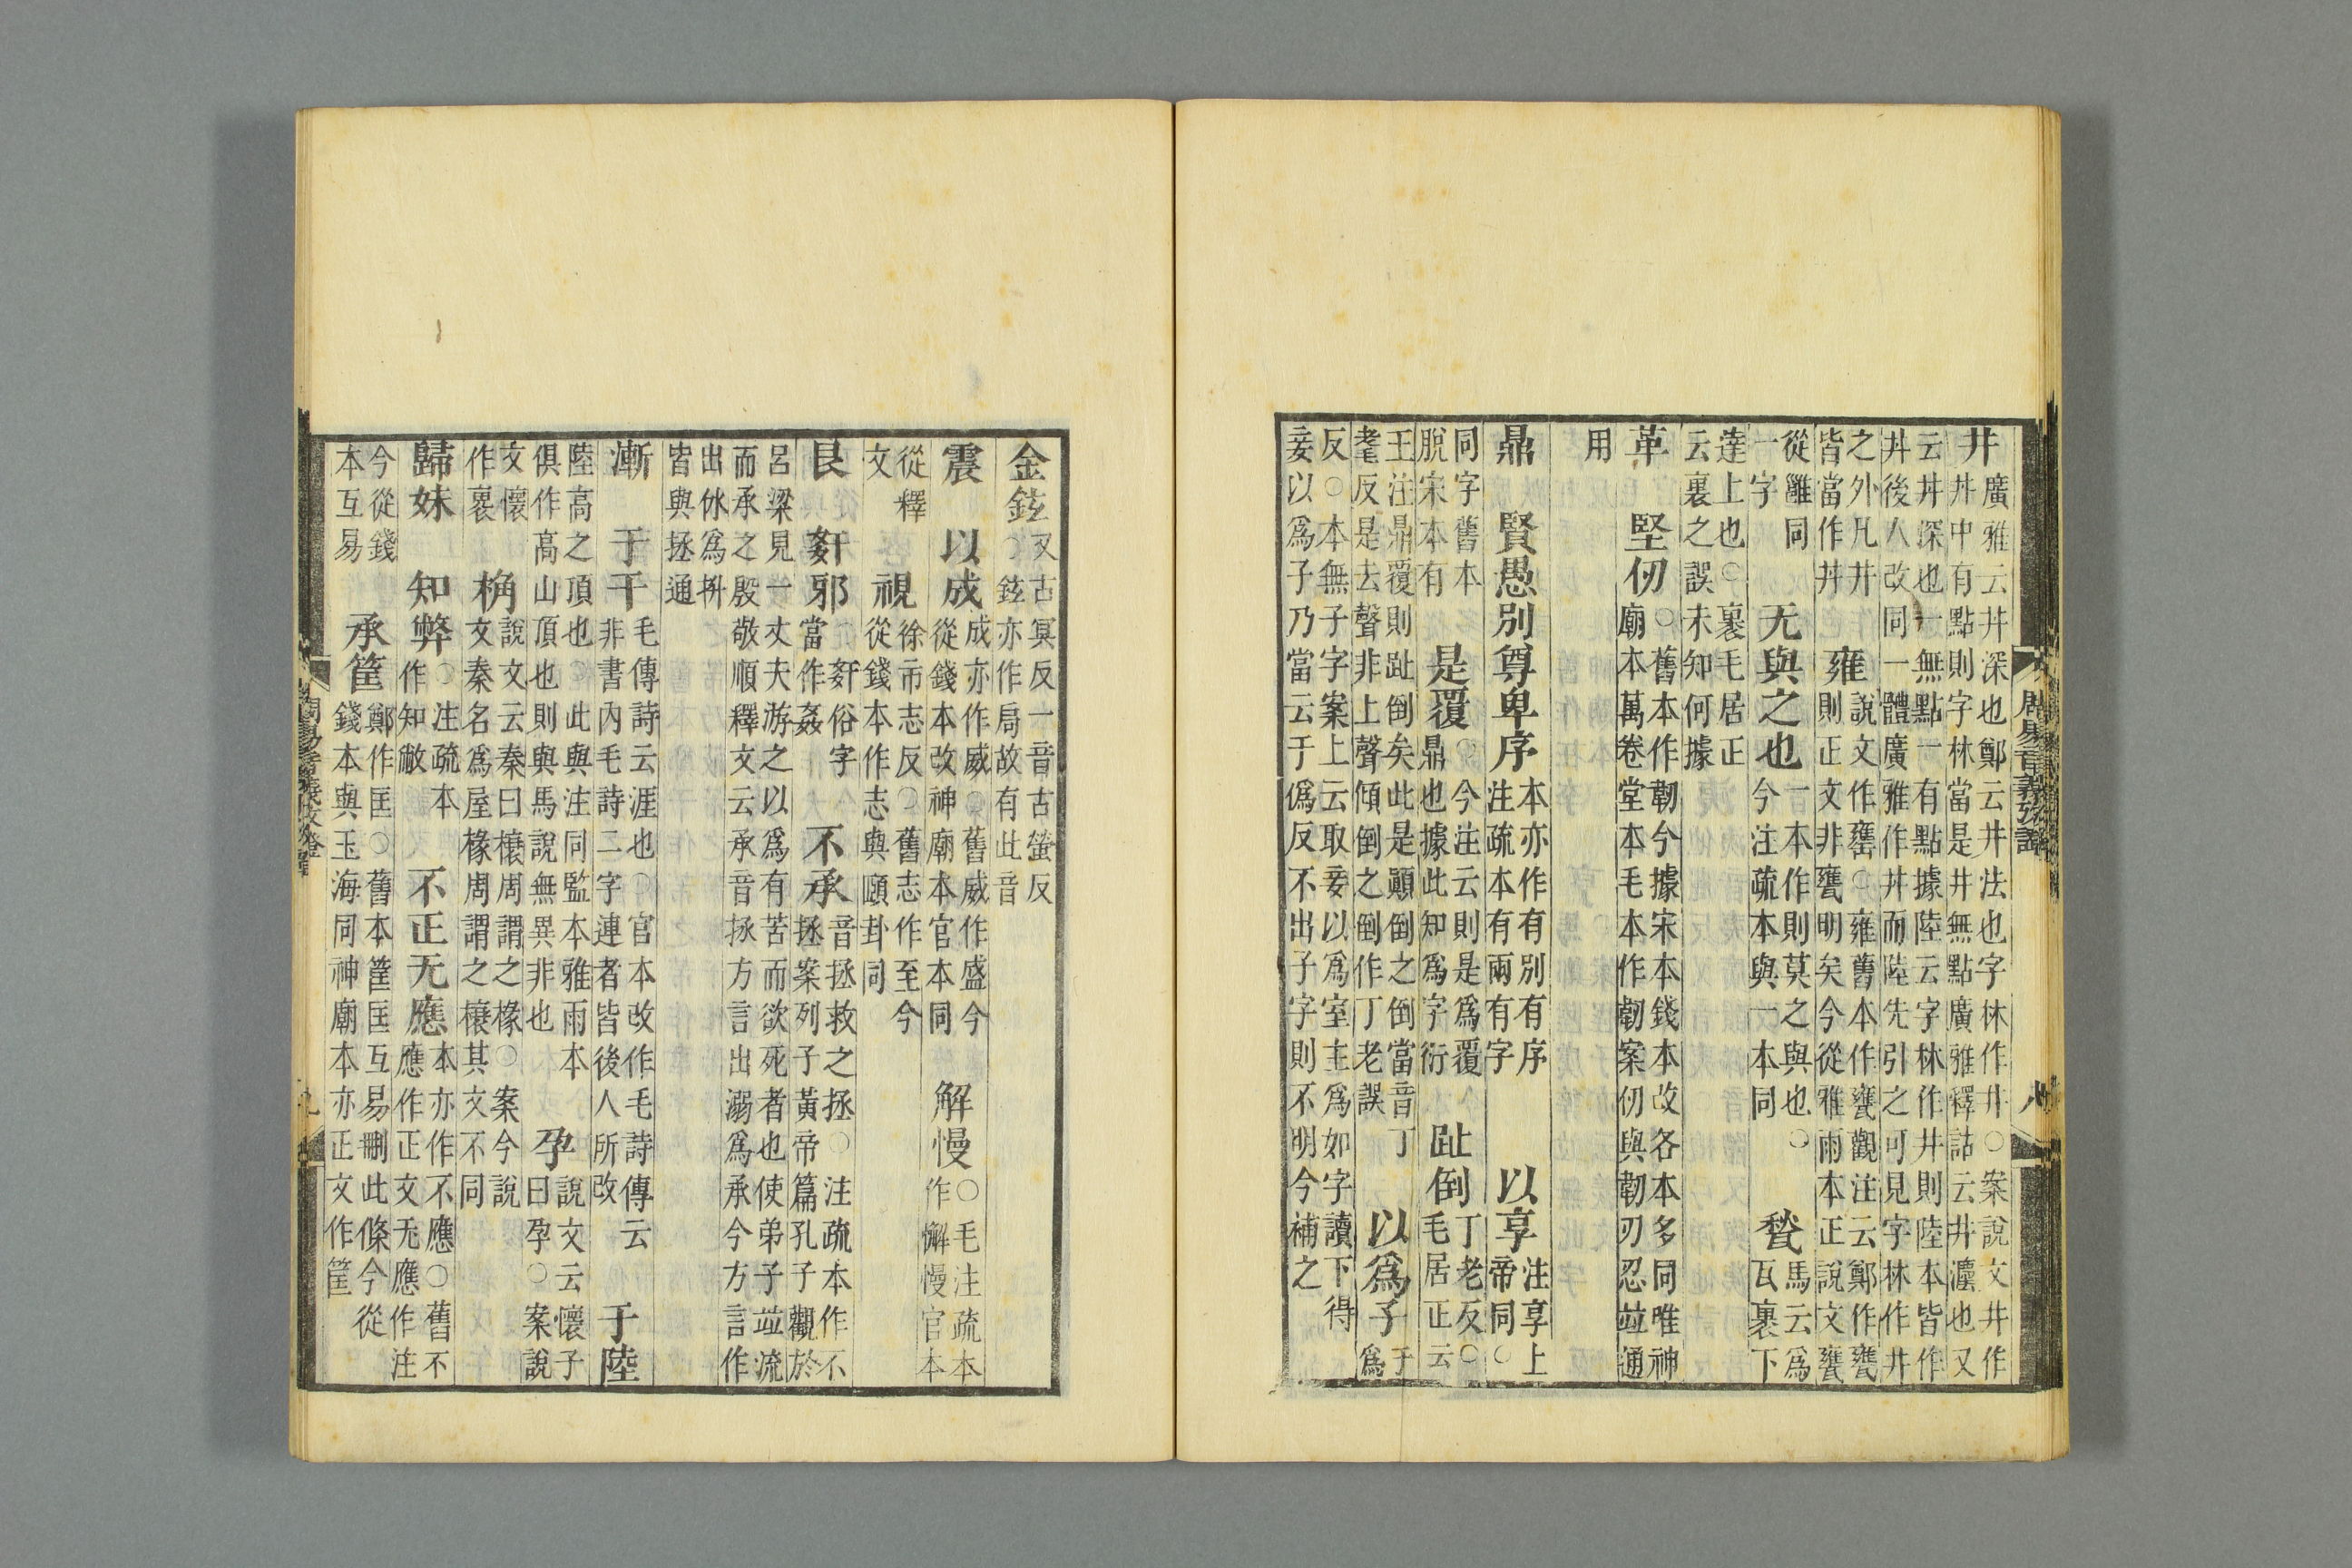 井廣雅云丼深也鄭云井法也字林作丼○案說文井作
丼中有點則字林當是井無點廣雅釋詁云丼瀍也又
云丼深也一無點一有點據陸云字林作井則陸本皆作
丼後人改同一體廣雅作丼而陸先引之可見字林作井
之外凡井
皆當作丼
雍說文作罋○雍舊本作甕觀注云鄭作甕
則正文非甕明矣今從雅雨本正說文甕
從雝同
一字
无與之也音一本作則莫之與也○
今注疏本與一本同
甃馬云爲
瓦裏下
達上也○裏毛居正
云裏之誤未知何據
革 堅仞○舊本作韌今據宋本錢本改各本多同唯神
廟本萬卷堂本毛本作韌案仞與韌刃忍竝通
用
鼎 賢愚別尊卑序本亦作有別有序
注疏本有兩有字
以享注享上
帝同○
同字舊本
脫宋本有
是覆○今注云則是爲覆
鼎也據此知爲字衍
趾倒丁老反○
毛居正云
王注鼎覆則趾倒矣此是顚倒之倒當音丁
耄反是去聲非上聲傾倒之倒作丁老誤
以爲子于
爲
反○本無子字案上云取妾以爲室主爲如字讀下得
妾以爲子乃當云于僞反不出子字則不明今補之
周易音義攷證 八
金鉉又古冥反一音古螢反
○鉉亦作扃故有此音
震 以成成亦作威○舊威作盛今
從錢本改神廟本官本同
解慢○毛注疏本
作懈慢官本
從釋
文
視徐市志反○舊志作至今
從錢本作志與頤卦同
艮 姧邪姧俗字
當作姦
不承音拯救之拯○注疏本作不
拯案列子黃帝篇孔子觀於
呂梁見一丈夫游之以爲有苦而欲死者也使弟子竝流
而承之殷敬順釋文云承音拯方言出溺爲承今方言作
出休爲抍
皆與拯通
漸 于干毛傳詩云涯也○官本改作毛詩傳云
非書內毛詩二字連者皆後人所改
于陸
陸高之頂也○此與注同監本雅雨本
俱作高山頂也則與馬說無異非也
孕說文云懷子
曰孕○案說
文懷
作褱
桷說文云秦曰榱周謂之椽○案今說
文秦名爲屋椽周謂之榱其文不同
歸妹 知弊○注疏本
作知敝
不正无應本亦作不應○舊不
應作正文无應作注
今從錢
本互易
承筐鄭作匡○舊本筐匡互易刪此條今從
錢本與玉海同神廟本亦正文作筐
周易音義攷證 九